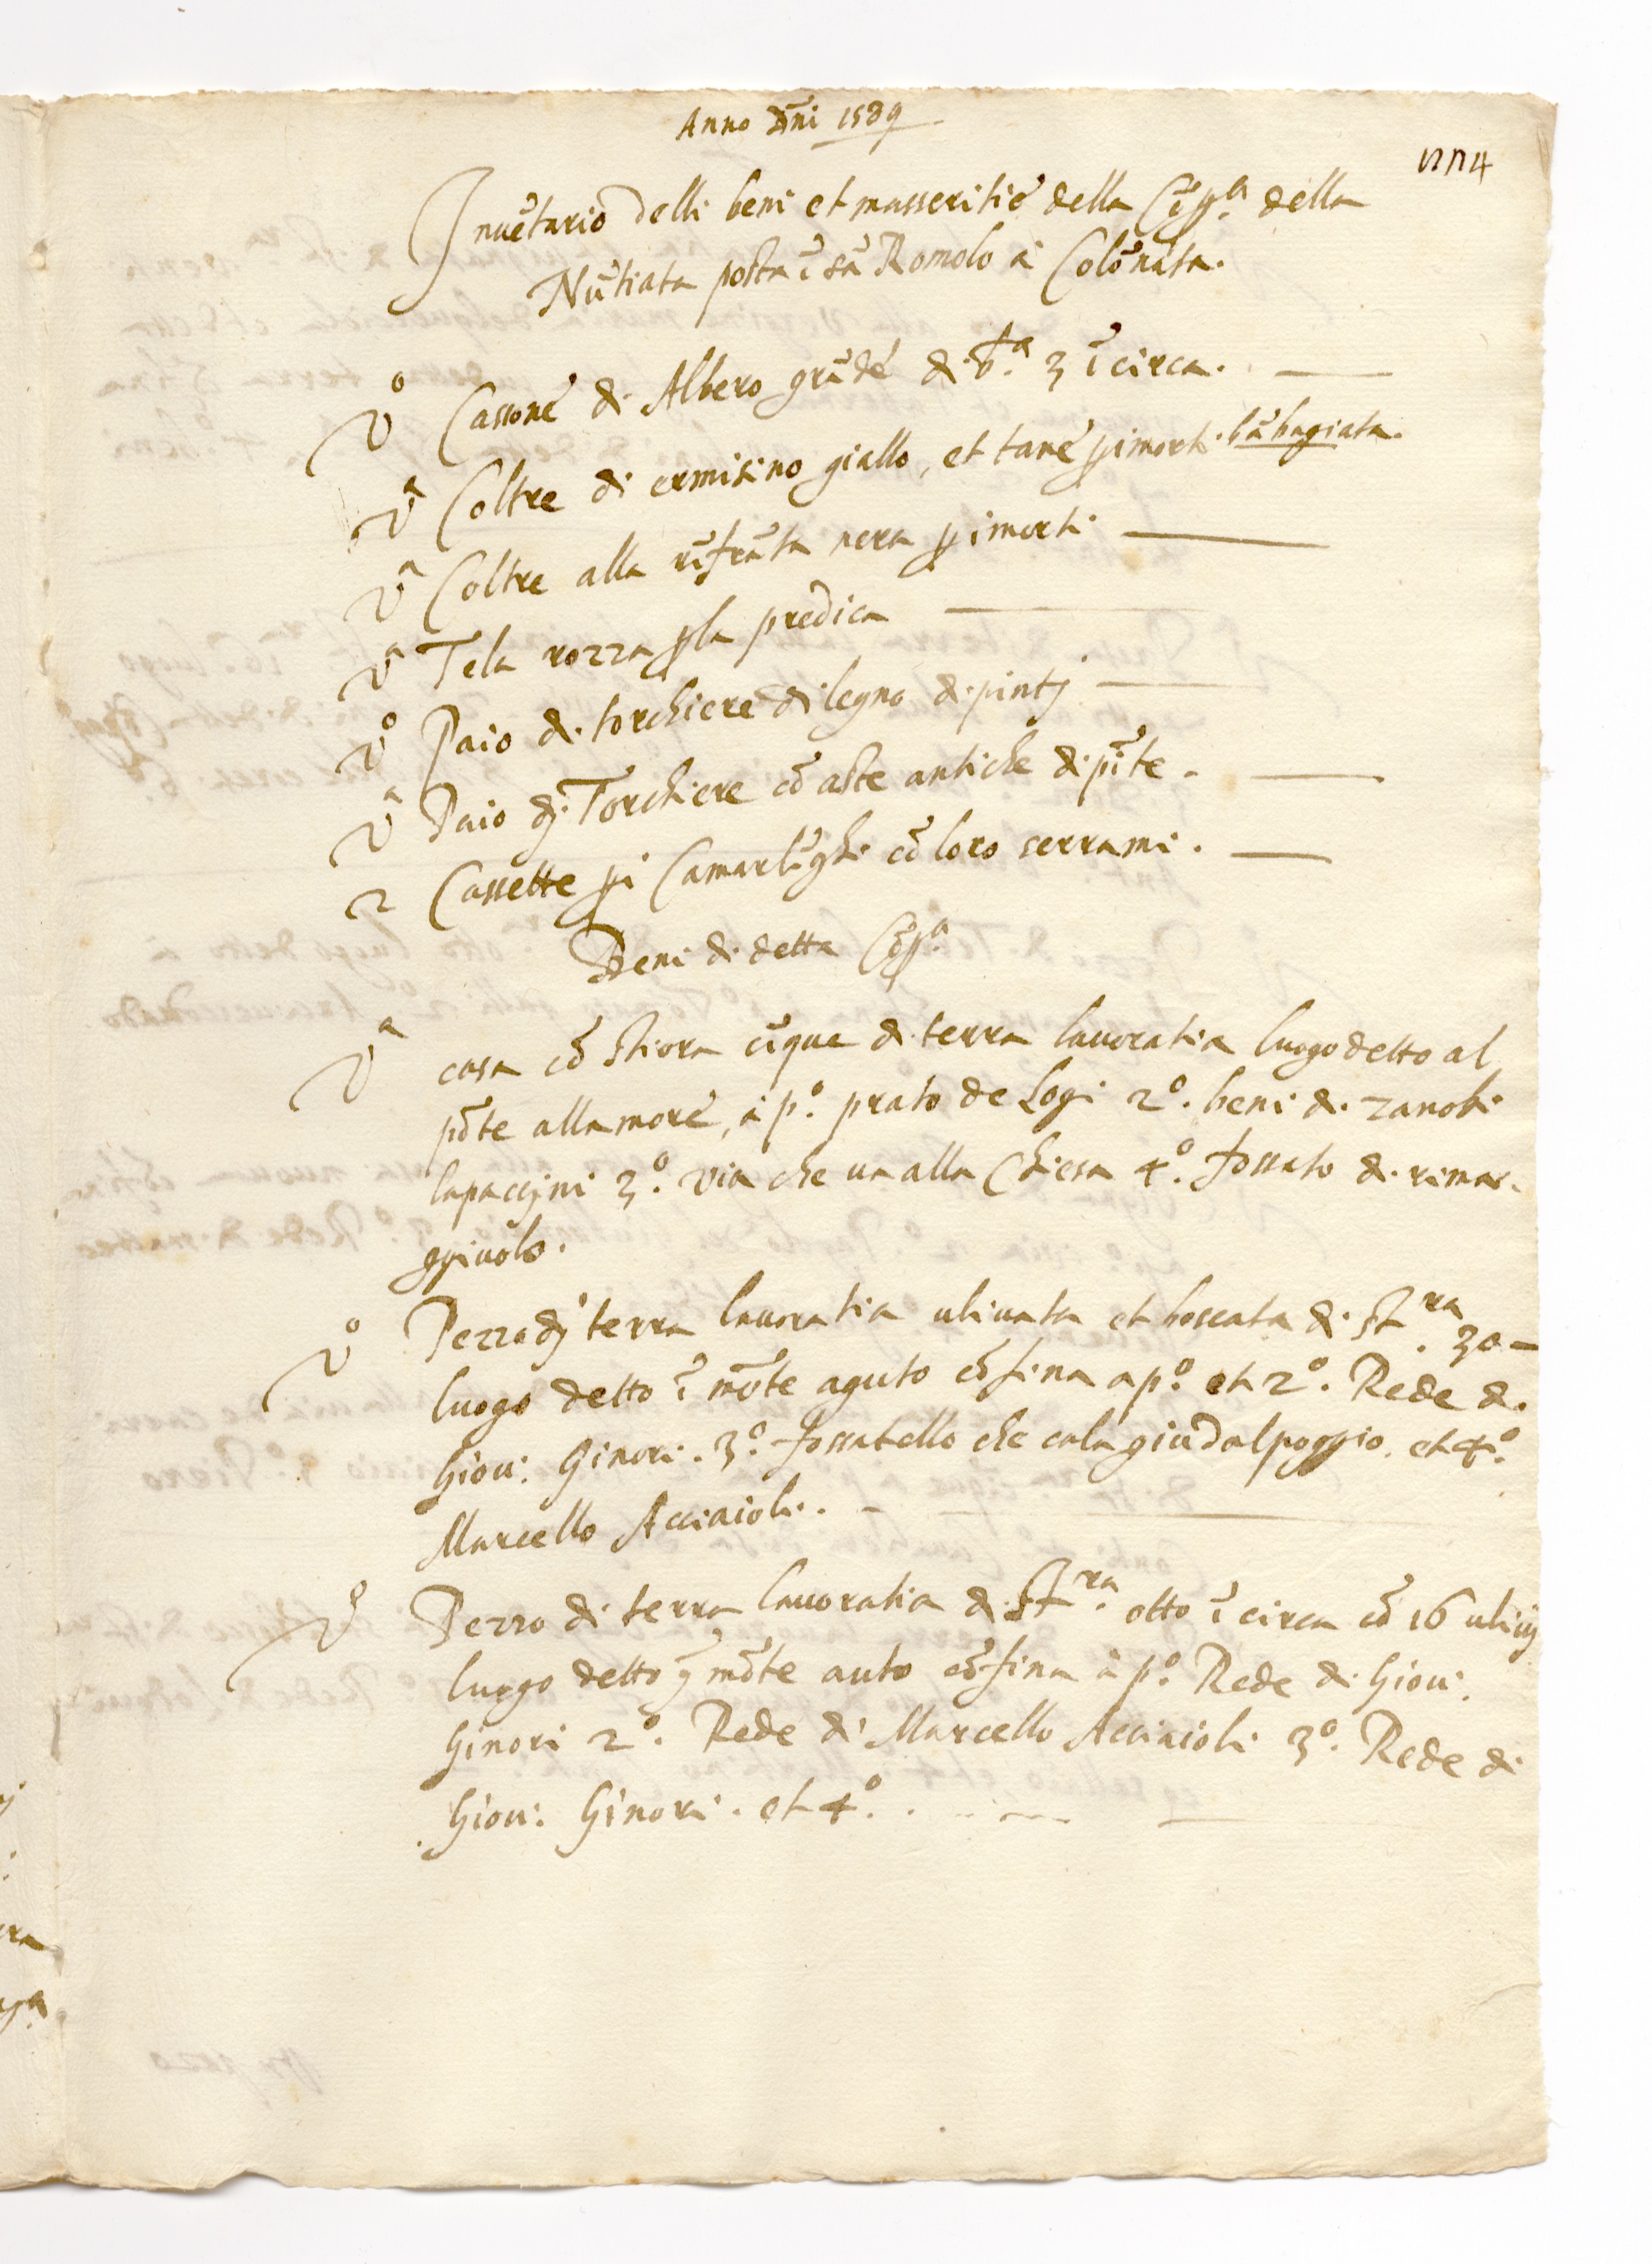 Anno Dñi 1589
1724
Inuẽtario delli beni et masseritie della Cõpª. della
Nũtiata posta ĩ sã Romolo à Colõnata.
Vº Cassone di Albero grãde di bª. 3 ĩ circa.
Vª Coltre di ermisino giallo, et tane p i morti bãbagiata.
Vª Coltre alla rĩfrãta nera p i morti
Vª Tela rozza p la predica
Vº Paio di torchiere di legno dipintj
Vª Paio dj Torchiere cõ aste antiche dipĩte.
2 Cassette p i Camarlĩghi cõ loro serrami.
Beni di detta Cõpª.
Vª casa cõ stiora cĩque di terra lauoratia luogo detto al
põte alla more, à pº. prato de Logi 2º. beni di zanobi
lapaccini 3º. via che ua alla Chiesa 4º. fossato di rimag-
giuolo.
Vº Pezzo dj terra lauoratia uliuata et boscata di stra. 30
luogo detto ĩ mõte aguto cõfina a pº. et 2º. Rede di
Giou: Ginori. 3º. fossatello che cala giu dal poggio. et 4º.
Marcello Acciaioli.
Vº Pezzo di terra lauoratia di stra. otto ĩ circa cõ 16 uliuj
luogo detto ĩ mõte auto cõfina à pº. Rede di Giou:
Ginori 2º. Rede di Marcello Acciaioli 3º. Rede di
Giou: Ginori. et 4º.